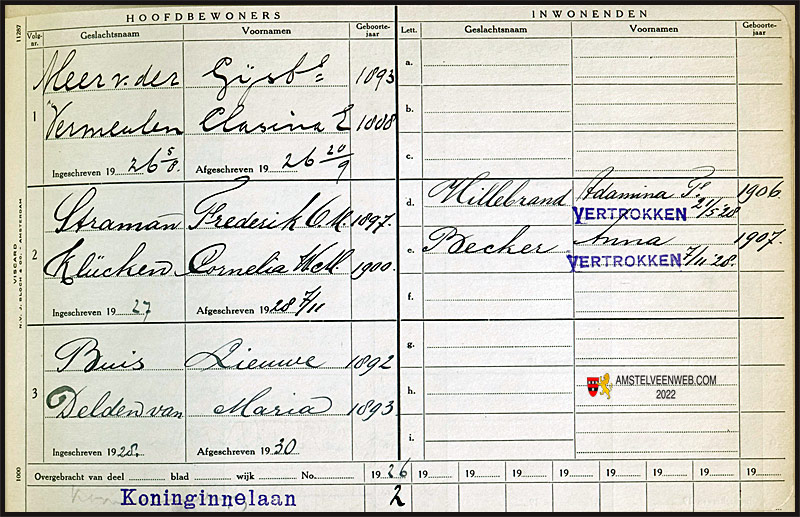 HOOFDBEWONERS
INWONENDEN
Volg-nr. Geslachtsnaam Voornamen Geboorte-jaar
Lett. Geslachtsnaam Voornamen Geboorte-jaar
1
Meer v. der Gijsb. 1893
Vermeulen Clasina E 1888
Ingeschreven 19 26 5/8. Afgeschreven 19 26 20/9
2
Straman Frederik C. M. 1897.
Klücken Cornelia W.M. 1900.
Ingeschreven 19 27 Afgeschreven 19 28 7/11
3
Buis Lieuwe 1892
Delden van Maria 1893
Ingeschreven 1928. Afgeschreven 1930
a.
b.
c.
d. Hillebrand Adamina P. 1906.
VERTROKKEN 21/5 '28.
e. Becker Anna 1907.
VERTROKKEN 7/11 '28.
f.
g.
h.
i.
AMSTELVEENWEB.COM
2022
Overgebracht van deel blad wijk No. 19 26 19 19 19 19 19 19 19 19
Koninginnelaan 2
11287
N.V. J. BLOCH & CO. AMSTERDAM
VISCARD
1000